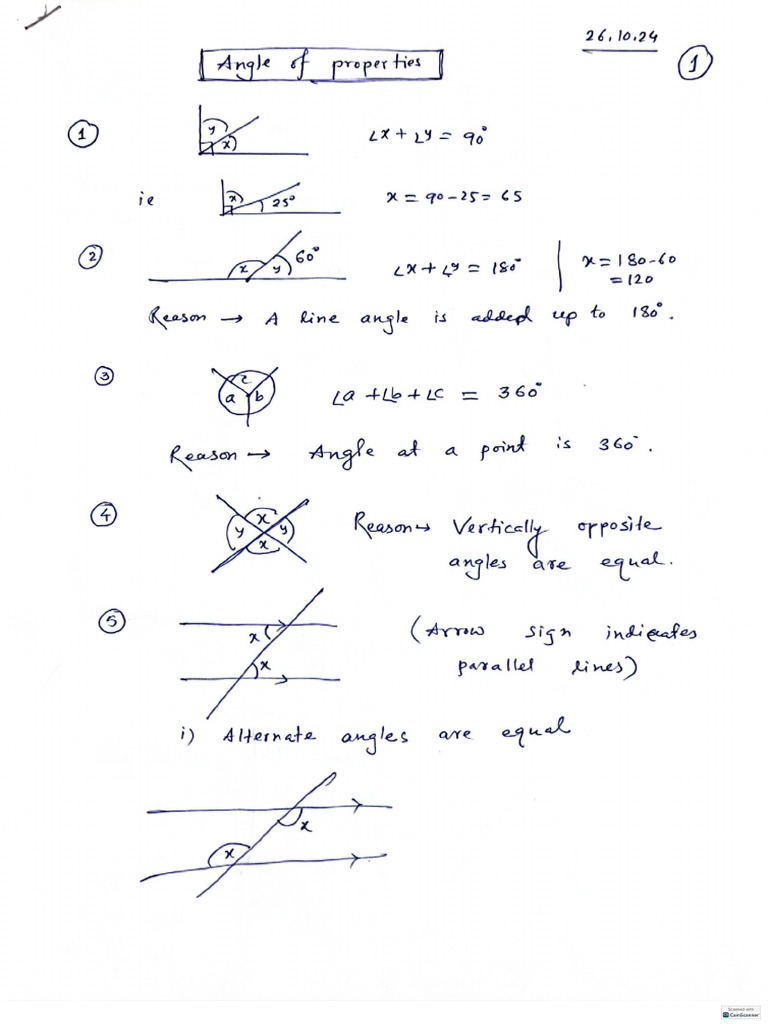 26.10.24
Angle of properties
①
①
y
x
∠x + ∠y = 90°
ie
x
25°
x = 90 - 25 = 65
②
x
y
60°
∠x + ∠y = 180°
x = 180 - 60
= 120
Reason → A line angle is added up to 180°.
③
c
a
b
∠a + ∠b + ∠c = 360°
Reason → Angle at a point is 360°.
④
x
y
y
x
Reason → Vertically opposite
angles are equal.
⑤
x
x
(Arrow sign indicates
parallel lines)
i) Alternate angles are equal
x
x
Scanned with
CamScanner